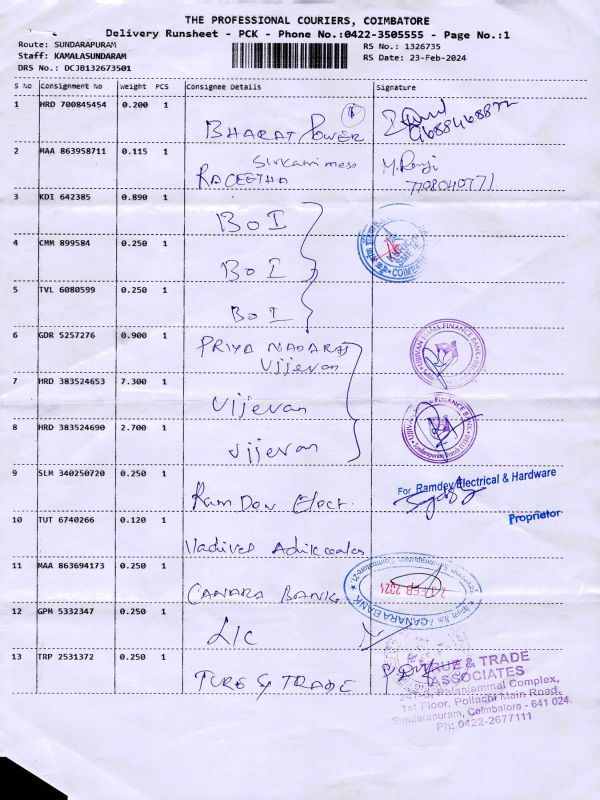 THE PROFESSIONAL COURIERS, COIMBATORE
Delivery Runsheet - PCK - Phone No.:0422-3505555 - Page No.:1
Route: SUNDARAPURAM
RS No.: 1326735
Staff: KAMALASUNDARAM
RS Date: 23-Feb-2024
DRS No.: DCJB132673501
S No Consignment No Weight PCS Consignee Details Signature
1 HRD 700845454 0.200 1
BHARAT POWER
9688468872
2 MAA 863958711 0.115 1
RAGEETHA
7708040771
3 KDI 642385 0.890 1
BOI
4 CMM 899584 0.250 1
BOI
COIMBATO
5 TVL 6080599 0.250 1
BOI
6 GDR 5257276 0.900 1
PRIYA NADARAJ
Vijjevan
UJJIVAN SMALL FINANCE BANK
7 HRD 383524653 7.300 1
Vijjevan
8 HRD 383524690 2.700 1
Vijjevan
FINANCE BANK
9 SLM 340250720 0.250 1
Ram Dev Elect.
For Ramdev Electrical & Hardware
Proprietor
10 TUT 6740266 0.120 1
11 MAA 863694173 0.250 1
CANARA BANK
23 FEB 2024
CANARA BANK
12 GPM 5332347 0.250 1
LIC
13 TRP 2531372 0.250 1
TURE & TRADE
TRUE & TRADE
ASSOCIATES
Palaniammal Complex,
1st Floor, Pollachi Main Road,
Sundarapuram, Coimbatore - 641 024.
Ph: 0422-2677111